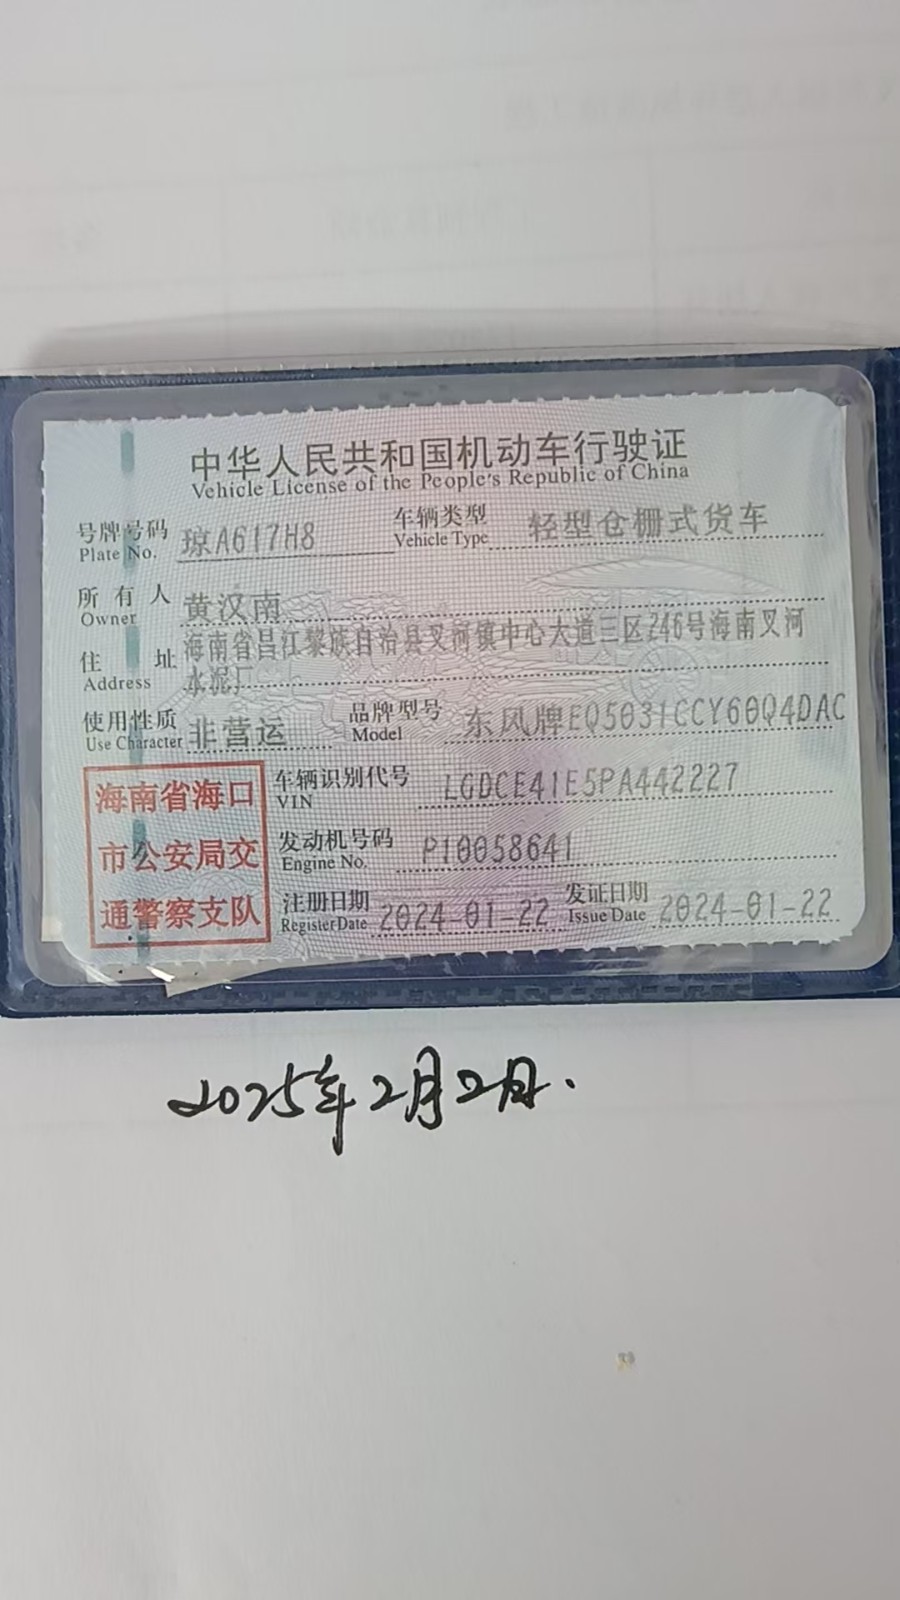 中华人民共和国机动车行驶证
Vehicle License of the People's Republic of China
号牌号码 琼A617H8 车辆类型 轻型仓栅式货车
Plate No. Vehicle Type
所有人 黄汉南
Owner
住址 海南省昌江黎族自治县叉河镇中心大道三区246号海南叉河
Address 水泥厂
使用性质 非营运 品牌型号 东风牌EQ5031CCY60Q4DAC
Use Character Model
海南省海口 车辆识别代号 LGDCE41E5PA442227
VIN
市公安局交 发动机号码 P10058641
Engine No.
通警察支队 注册日期 2024-01-22 发证日期 2024-01-22
Register Date Issue Date
2025年2月2日.